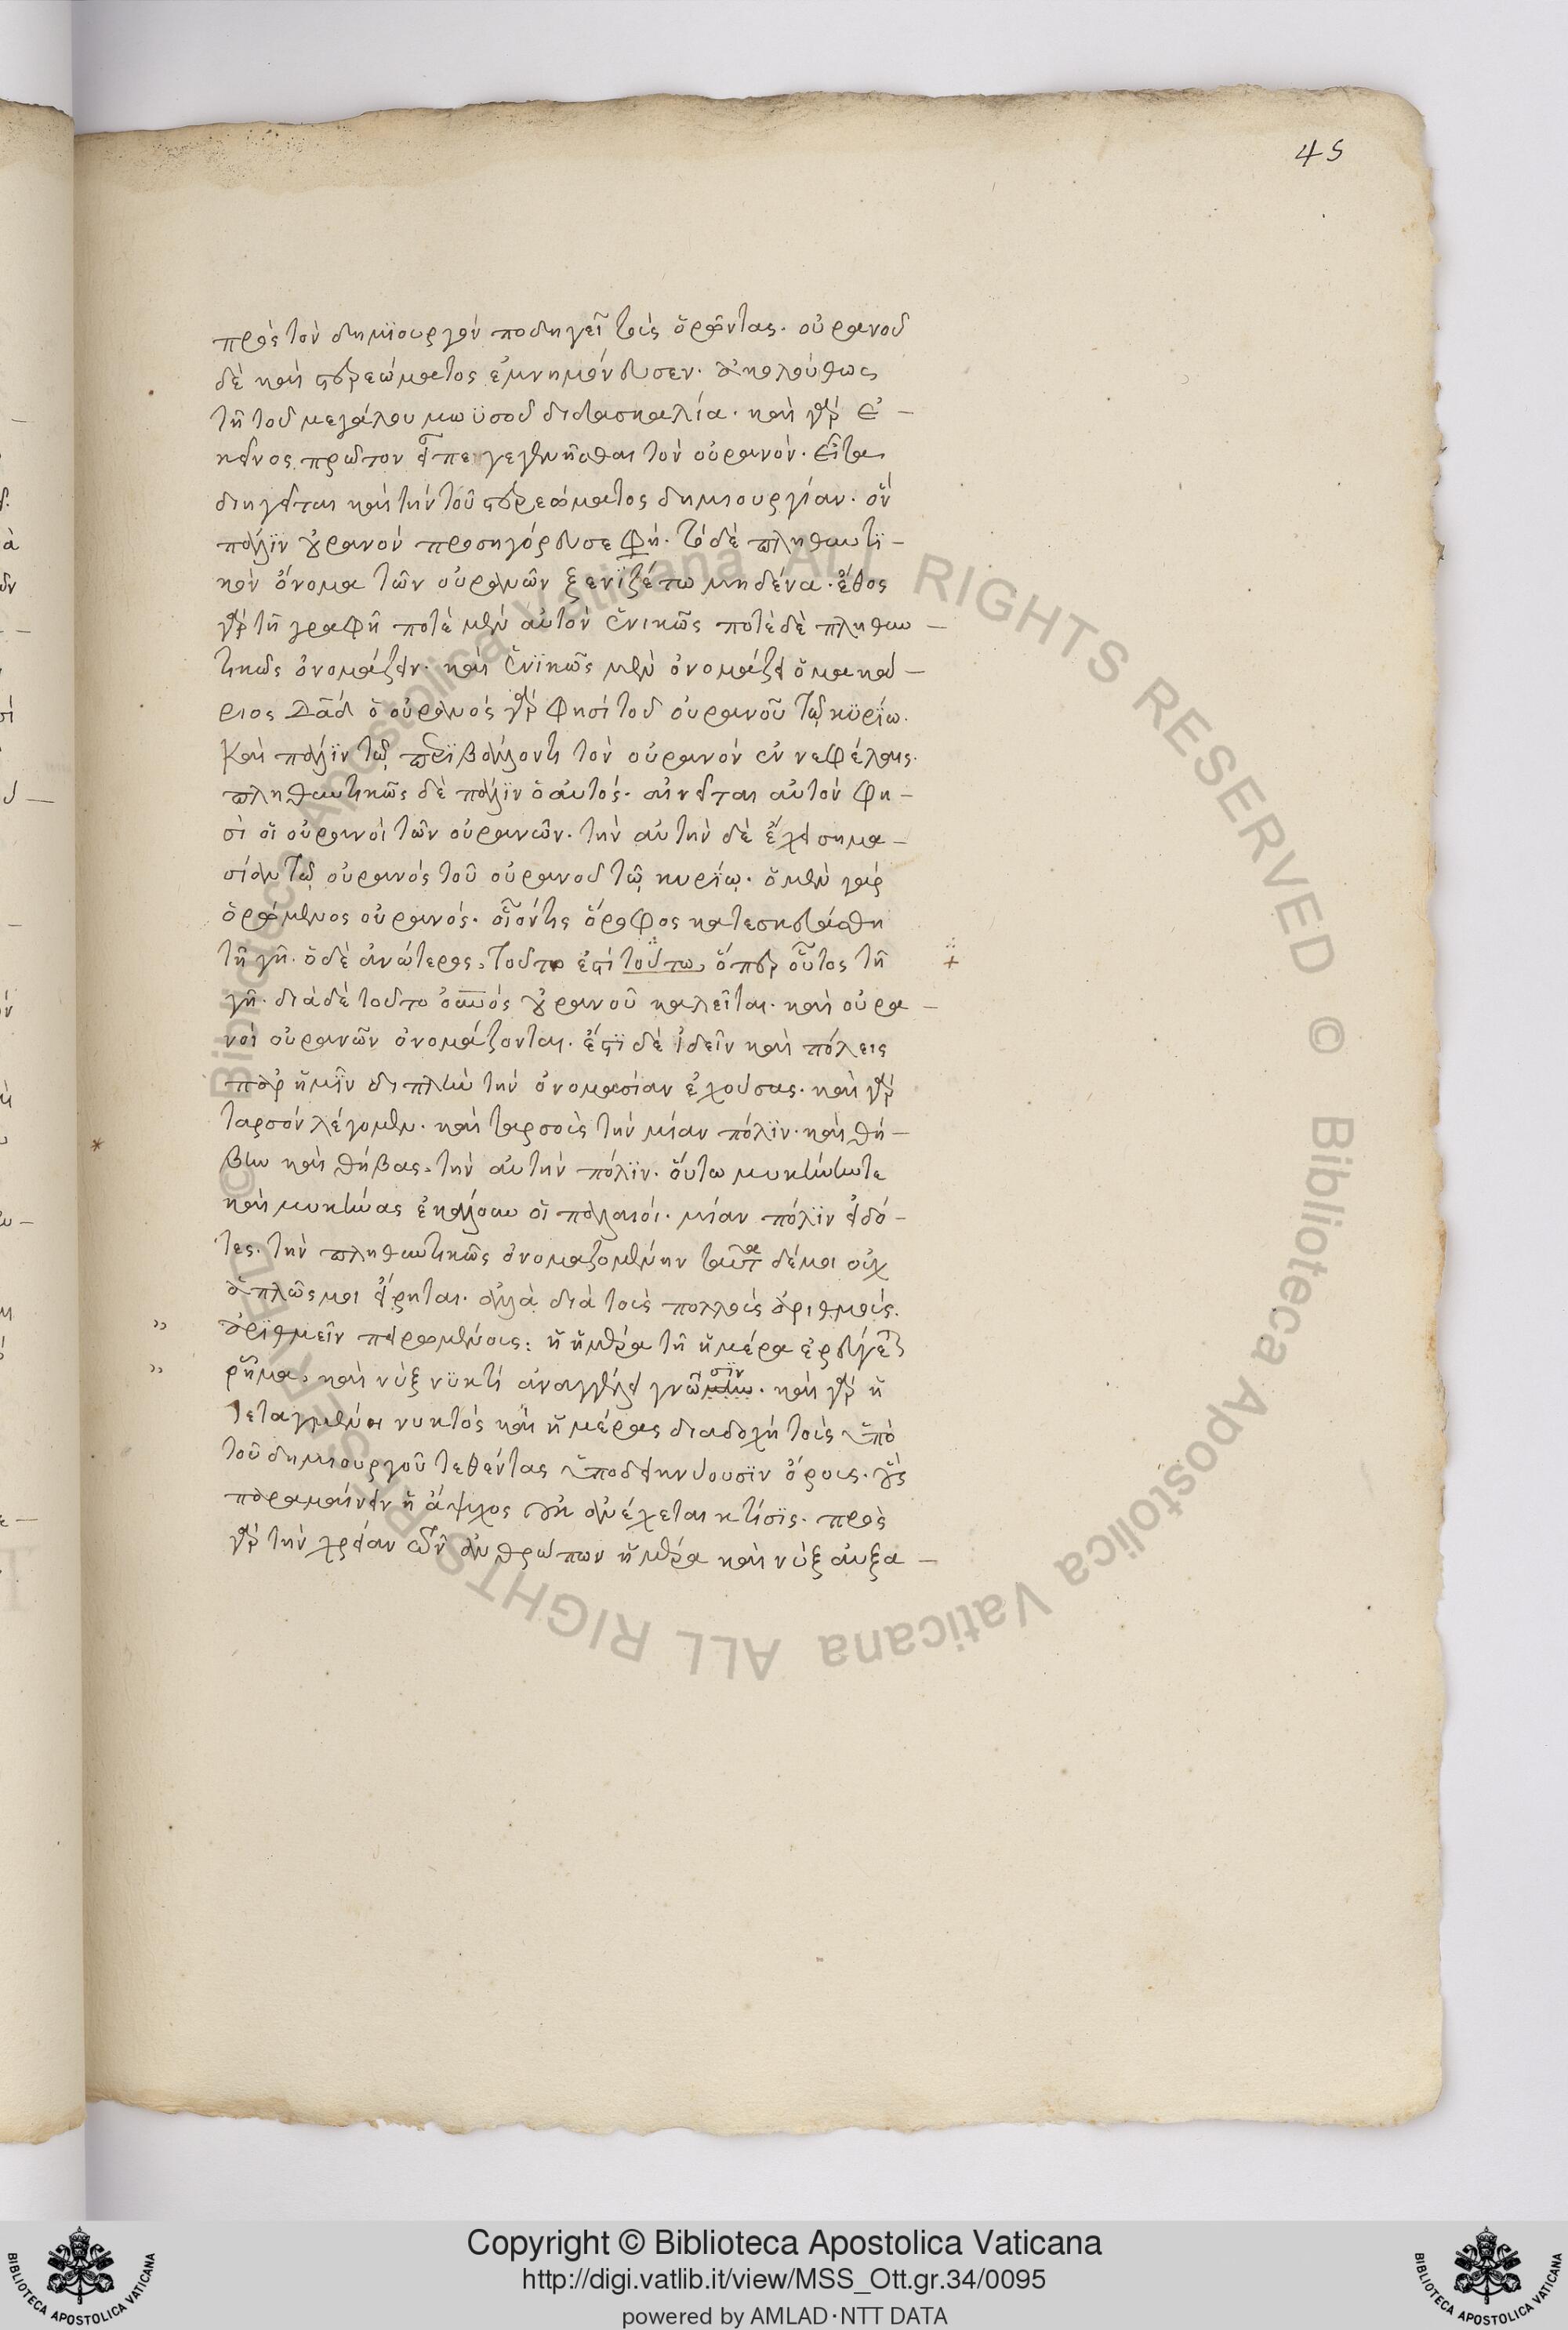 45
πρὸς τὸν δημϊουργὸν ποδηγεῖ τοὺς ὁρῶντας. οὐρανοῦ
δὲ καὶ στερεώματος ἐμνημόνευσεν. ἀκολούθως
τῆ τοῦ μεγάλου μωϋσοῦ διδασκαλία. καὶ γὰρ ἐ-
κεῖνος πρῶτον εἶπε γεγενῆσθαι τὸν οὐρανόν. εἶτα
διηγεῖται καὶ τὴν τοῦ στερεώματος δημιουργίαν. ὃν
πάλϊν οὐρανὸν προσηγόρευσε φη. τὸ δὲ πληθυντϊ-
κὸν ὄνομα τῶν οὐρανῶν ξενϊζέτω μηδένα. ἔθος
γὰρ τῆ γραφῆ ποτὲ μὲν αὐτὸν ἑνικῶς ποτὲ δὲ πληθυν-
τικῶς ὀνομάζειν. καὶ ἑνϊκῶς μὲν ὀνομάζει ὁ μακά-
ριος δᾱδ ὁ οὐρανός γάρ φησὶ τοῦ οὐρανοῦ τῶ κϋρίω.
καὶ πάλϊν τῶ περϊβάλλοντι τὸν οὐρανὸν ἐν νεφέλαις.
πληθυντικῶς δὲ πάλϊν ὁ αὐτός. αἰνεῖται αὐτὸν φη-
σὶ οἱ οὐρανοὶ τῶν οὐρανῶν. τὴν αὐτὴν δὲ ἔχει σημα-
σίαν τῶ οὐρανὸς τοῦ οὐρανοῦ τῶ κυρίω. ὁ μὲν γὰρ
ὁρώμενος οὐρανός. οἷόν τις ὄροφος κατεσκευάσθη
τῆ γῆ. ὁ δὲ ἀνώτερος, τοῦτο ἐστὶ τούτω, ὅπερ οὗτος τῆ
γῆ. διὰ δὲ τοῦτο οὐνός οὐρανοῦ καλεῖται. καὶ οὐρα-
νοὶ οὐρανῶν ὀνομάζονται. ἔστϊ δὲ ἰδεῖν καὶ πόλεις
παρ ἡμῖν διπλῆν τὴν ὀνομασίαν ἐχούσας. καὶ γὰρ
ταρσὸν λέγομεν. καὶ ταρσοὺς τὴν μίαν πόλϊν. καὶ θή-
βην καὶ θήβας, τὴν αὐτὴν πόλϊν. οὕτω μυκήνην τε
καὶ μυκήνας ἐκάλουν οἱ παλαιοί. μίαν πόλϊν εἰδό-
τες. τὴν πληθυντικῶς ὀνομαζομένην ταῦτα δέ μοι οὐχ
ἁπλῶς μοι εἴρηται. ἀλλὰ διὰ τοὺς πολλοὺς ἀριθμοὺς.
ἀρϊθμεῖν πειρωμένους: ἡ ἡμέρα τῆ ἡμέρα ἐρεύγεται
ρῆμα, καὶ νὺξ νϋκτὶ ἀναγγέλλει γνῶσϊν. καὶ γὰρ ἡ
τεταγμένη νυκτὸς καὶ ἡμέρας διαδοχὴ τοὺς ὑπὸ
τοῦ δημιουργοῦ τεθέντας ὑποδεικνύουσϊν ὅρους. οὓς
παραμείνειν ἡ ἄψυχος οὐκ ἀνέχεται κτίσϊς. πρὸς
γὰρ τὴν χρείαν τῶν ἀνθρώπων ἡμέρα καὶ νὺξ αὐξα-
Copyright © Biblioteca Apostolica Vaticana
http://digi.vatlib.it/view/MSS_Ott.gr.34/0095
powered by AMLAD·NTT DATA